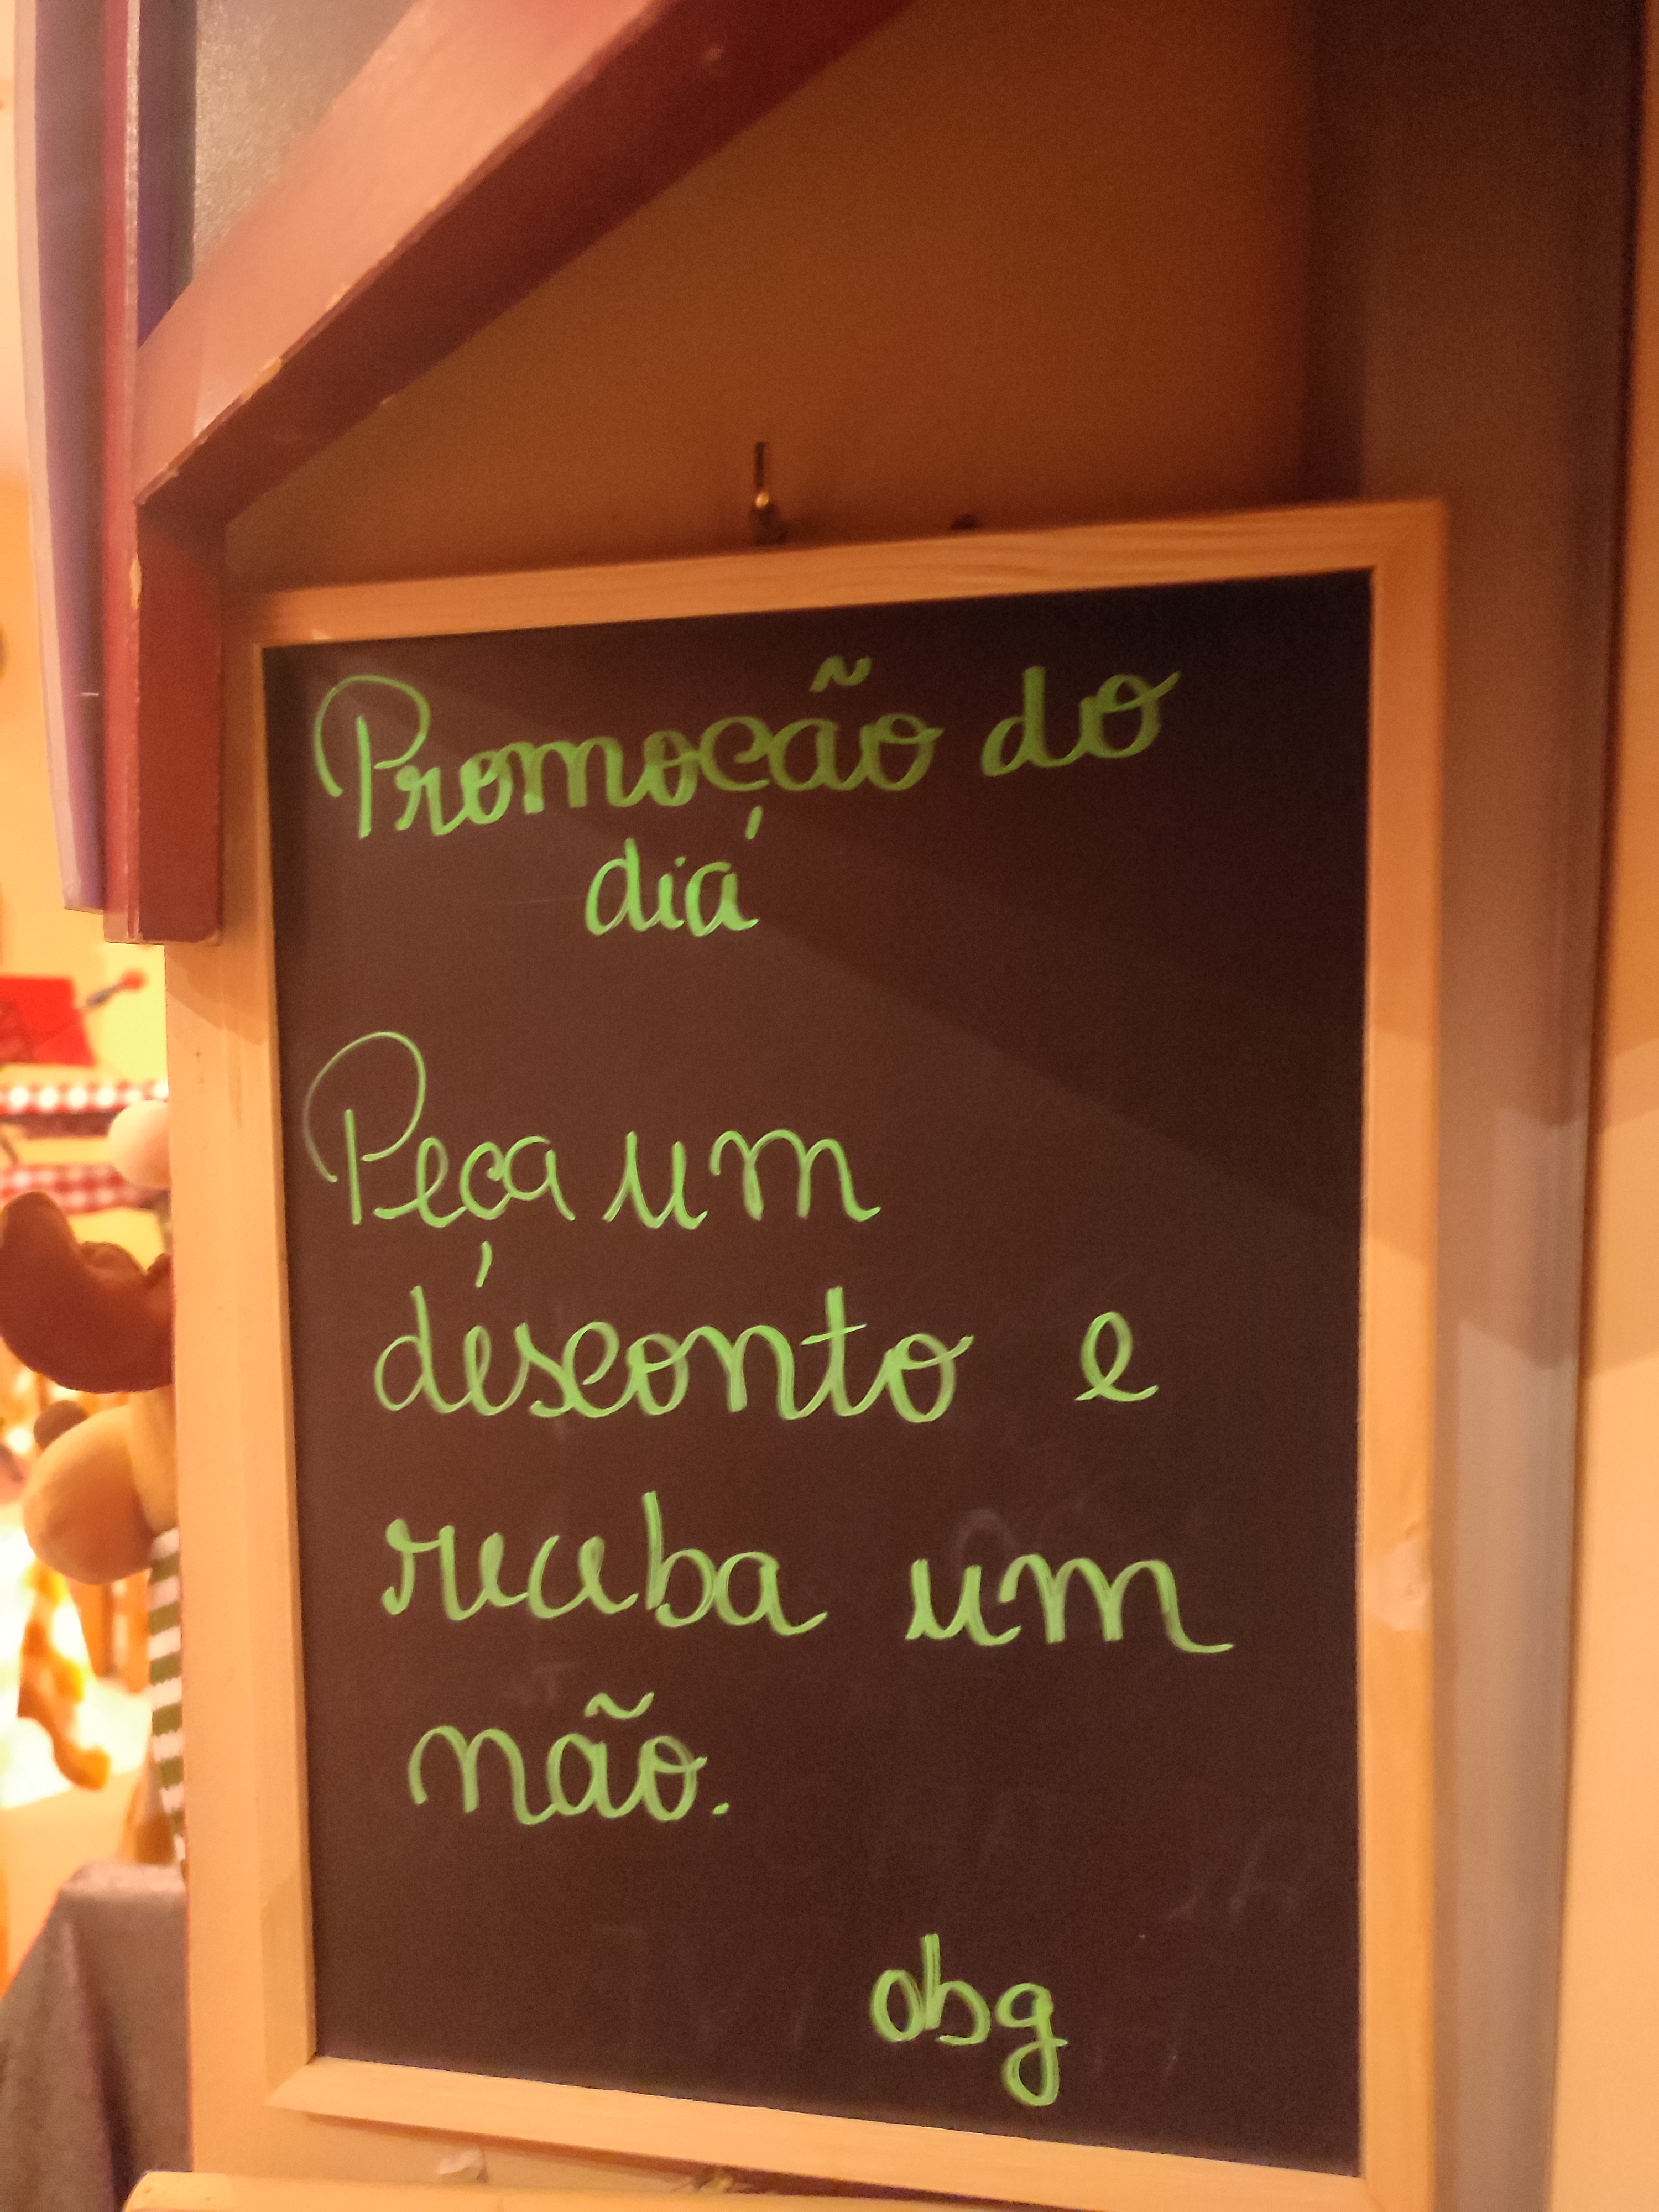 Promoção do
dia
Peça um
desconto e
receba um
não.
obg